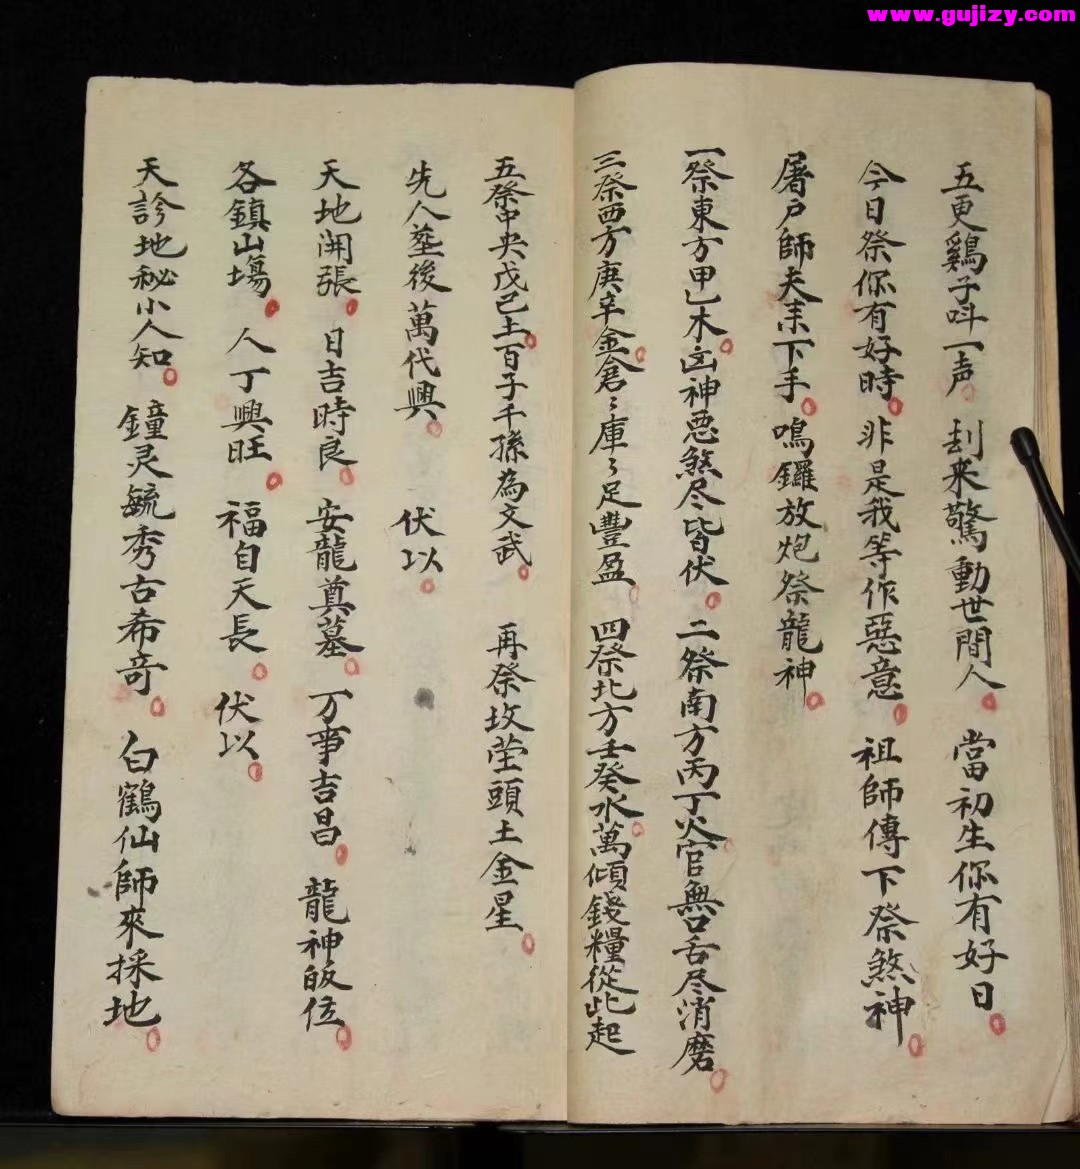 www.gujizy.com
五更鷄子呌一声 刦来驚動世間人 當初生你有好日
今日祭你有好時 非是我等作惡意 祖師傳下祭煞神
屠户師夫来下手 鳴鑼放炮祭龍神
一祭東方甲乙木 凶神惡煞尽皆伏 二祭南方丙丁火 官無口舌尽消磨
三祭西方庚辛金 倉〻庫〻足豐盈 四祭北方壬癸水 萬傾錢糧從此起
五祭中央戊己土 百子千孫為文武 再祭坟塋頭土金星
先人塟後萬代興 伏以
天地開張 日吉時良 安龍奠墓 万事吉昌 龍神皈位
各鎮山塲 人丁興旺 福自天長 伏以
天診地秘小人知 鐘灵毓秀古希竒 白鶴仙師來採地